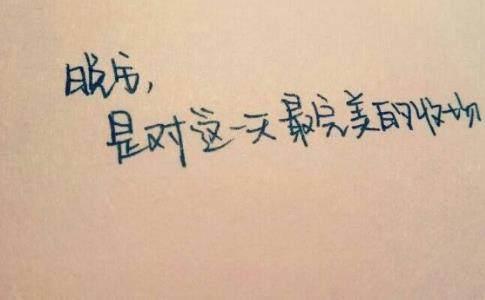 晚安，
是对这一天最完美的收场